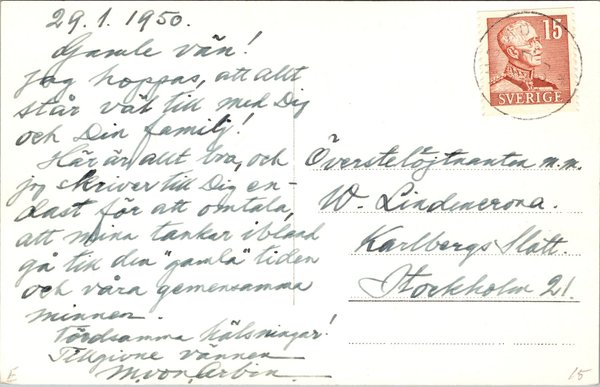 29.1.1950.
Gamle vän!
Jag hoppas, att allt
står väl till med Dig
och Din familj!
Här är allt bra, och
jag skriver till Dig en-
dast för att omtala,
att mina tankar ibland
gå till den "gamla" tiden
och våra gemensamma
minnen.
Tillgivne vännen
M. von Arbin
15
SVERIGE
Överstelöjtnanten m.m.
W. Lindencrona.
Karlbergs Slott.
Stockholm 21.
15